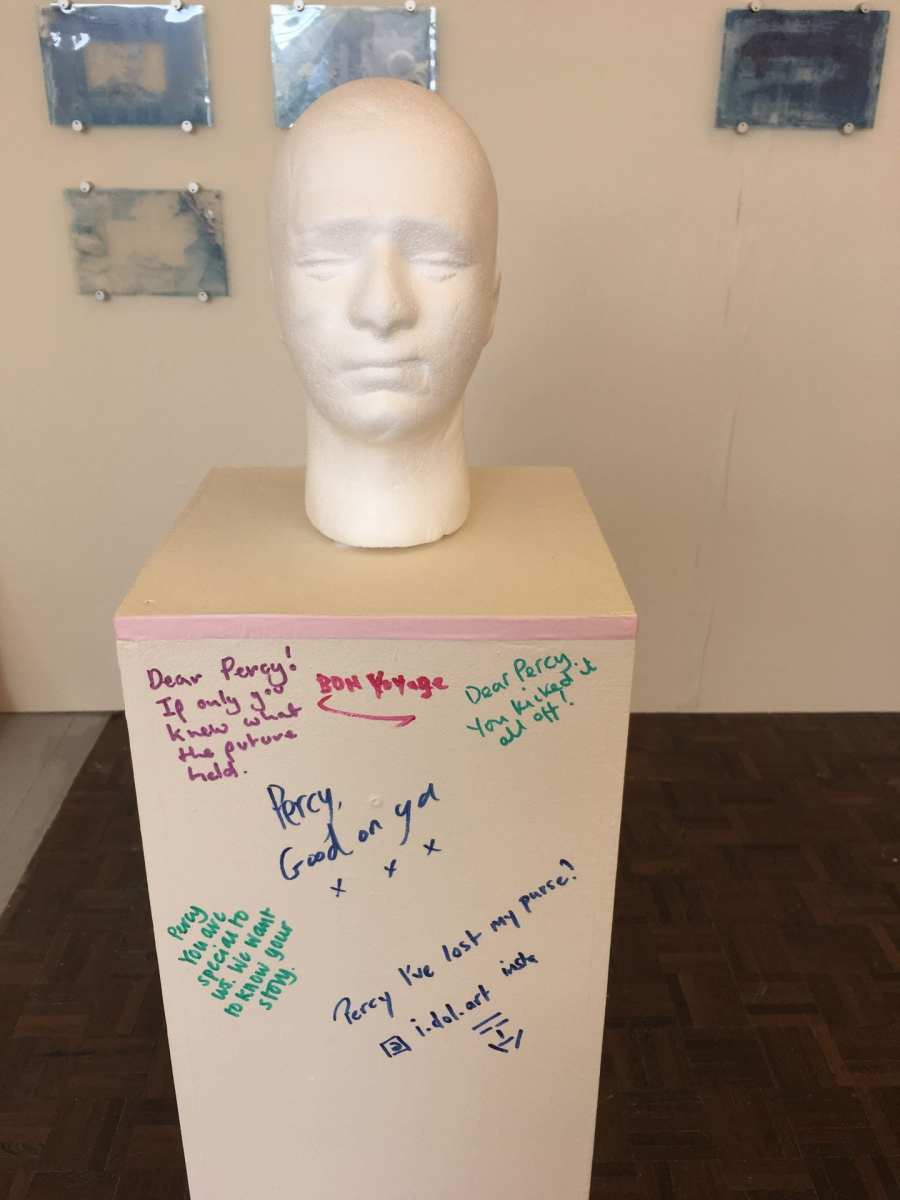 Dear Percy!
If only you
knew what
the future
held.
BON Voyage
Dear Percy.
You kicked it
all off!
Percy,
Good on ya
x x x
Percy
You are
special to
us. We want
to know your
story.
Percy I've lost my purse!
i.dol.art insta